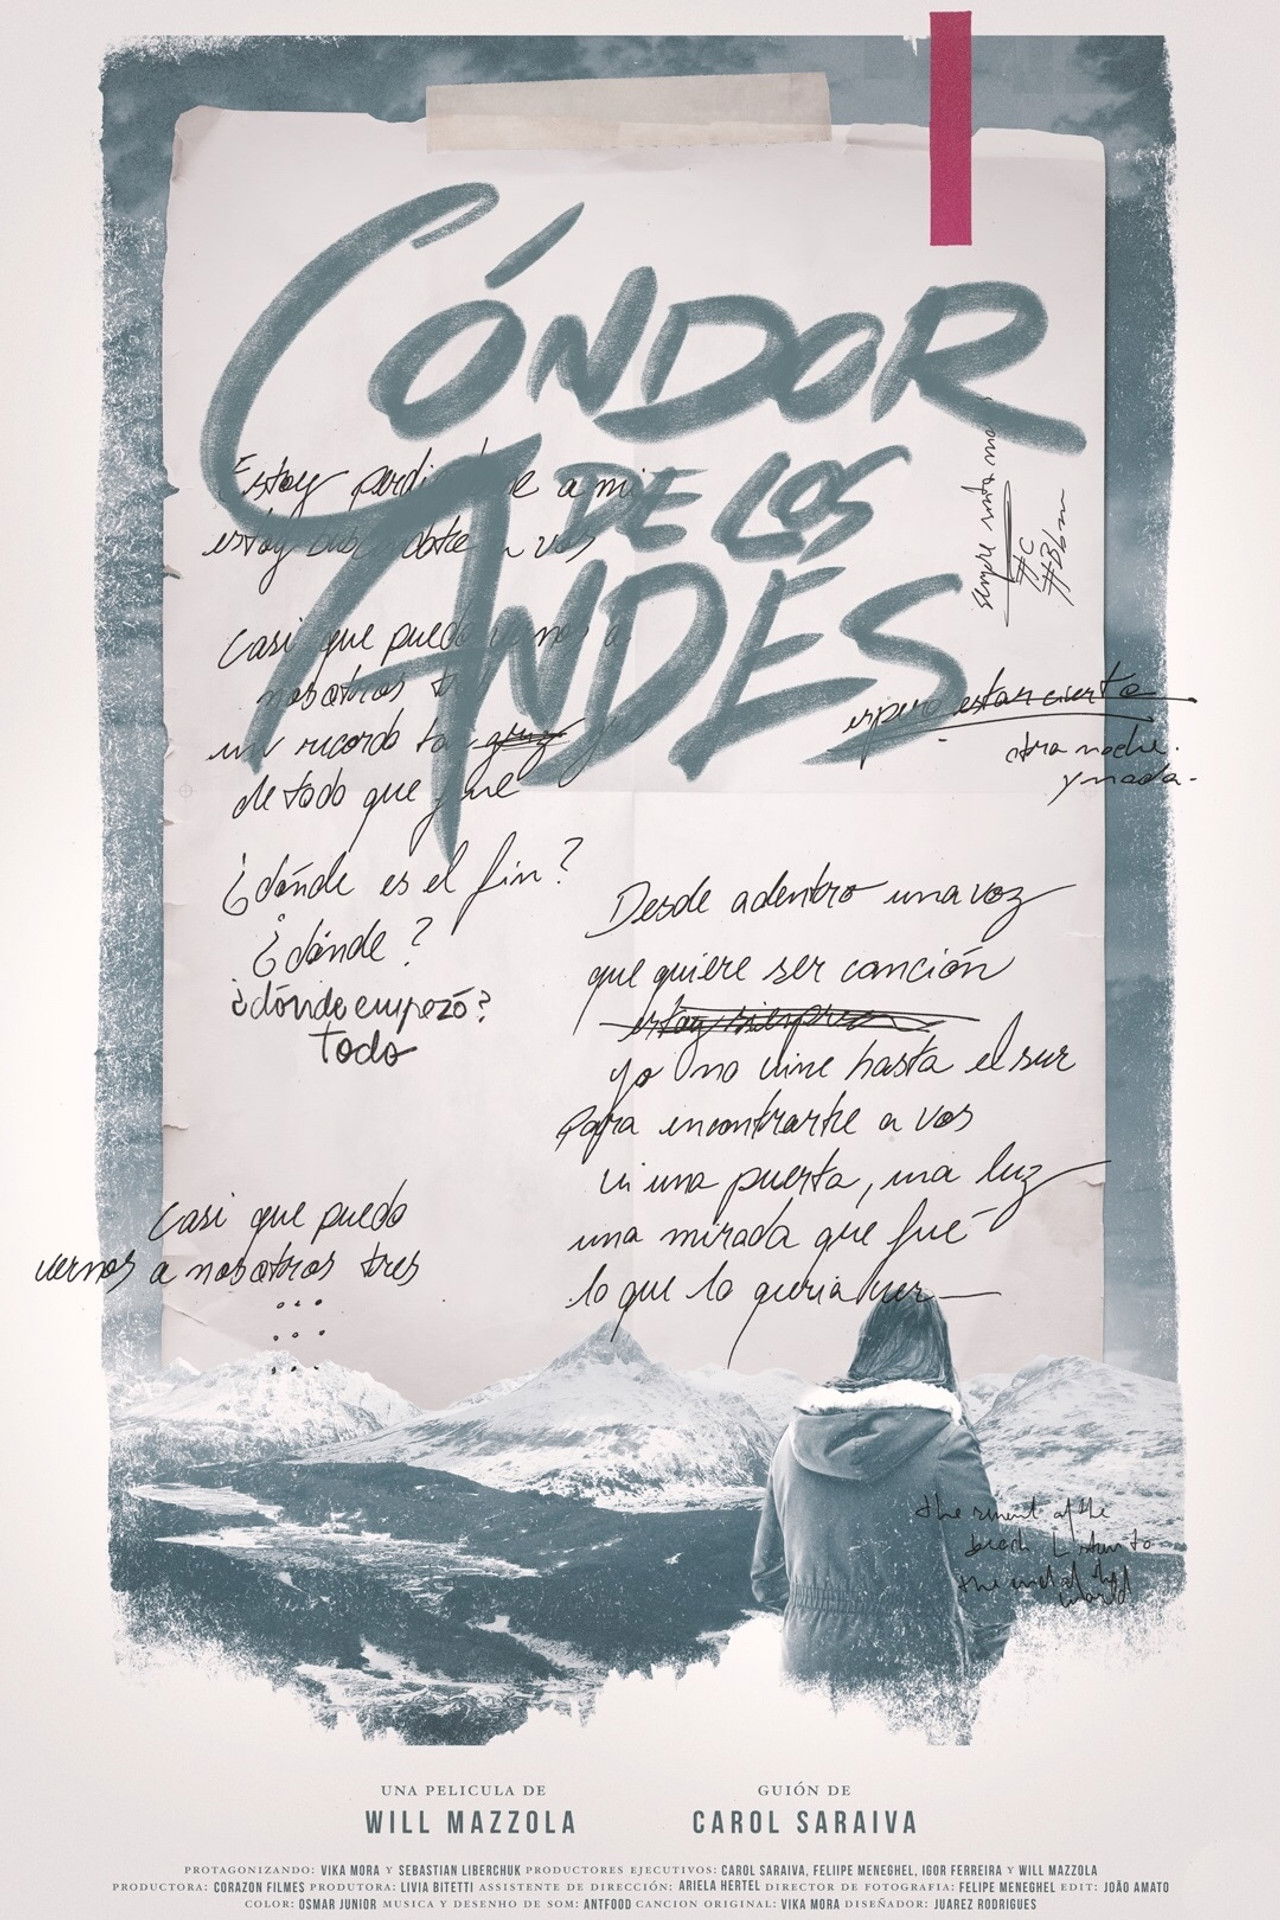 CÓNDOR
DE LOS
ANDES
Estoy a mi
estoy vos
siempre
#C
#Bbm
Casi que puedo vernos a
nosotros
un recordo
de todo que fue
espero estar cierta
otra noche.
y nada.
¿dónde es el fin?
¿dónde?
¿dónde empezó?
todo
Desde adentro una voz
que quiere ser canción
estoy siempre
yo no vine hasta el sur
para encontrarte a vos
vi una puerta, una luz
una mirada que fué
lo que lo queria ver
Casi que puedo
vernos a nosotros tres
the of the
beach Listen to
the end of the
world
UNA PELICULA DE
WILL MAZZOLA
GUIÓN DE
CAROL SARAIVA
PROTAGONIZANDO: VIKA MORA Y SEBASTIAN LIBERCHUK PRODUCTORES EJECUTIVOS: CAROL SARAIVA, FELIIPE MENEGHEL, IGOR FERREIRA Y WILL MAZZOLA
PRODUCTORA: CORAZON FILMES PRODUTORA: LIVIA BITETTI ASSISTENTE DE DIRECCIÓN: ARIELA HERTEL DIRECTOR DE FOTOGRAFIA: FELIPE MENEGHEL EDIT: JOÃO AMATO
COLOR: OSMAR JUNIOR MUSICA Y DESENHO DE SOM: ANTFOOD CANCION ORIGINAL: VIKA MORA DISEÑADOR: JUAREZ RODRIGUES